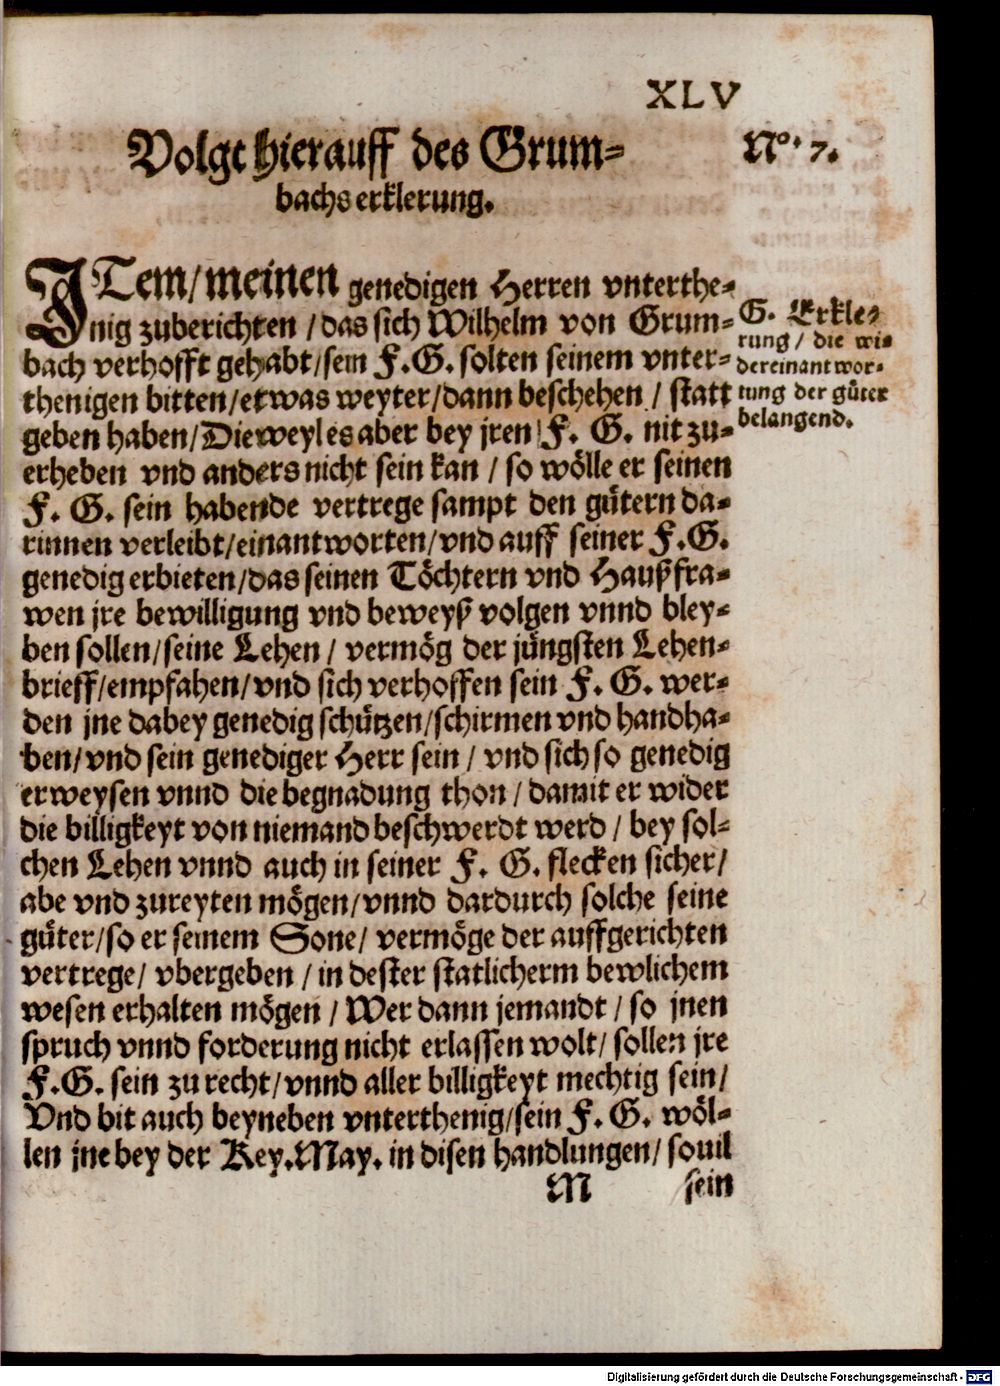 XLV
Volgt hierauff des Grum-
bachs erklerung.
No. 7.
ITem/meinen genedigen Herren vnterthe-
nig zuberichten/das sich Wilhelm von Grum-
bach verhofft gehabt/sein F.G. solten seinem vnter-
thenigen bitten/etwas weyter/dann beschehen/statt
geben haben/Dieweyl es aber bey jren F. G. nit zu-
erheben vnd anders nicht sein kan/so wölle er seinen
F. G. sein habende vertrege sampt den gütern da-
rinnen verleibt/einantworten/vnd auff seiner F.G.
genedig erbieten/das seinen Töchtern vnd Haußfra-
wen jre bewilligung vnd beweyß volgen vnnd bley-
ben sollen/seine Lehen/vermög der jüngsten Lehen-
brieff/empfahen/vnd sich verhoffen sein F. G. wer-
den jne dabey genedig schützen/schirmen vnd handha-
ben/vnd sein genediger Herr sein/vnd sich so genedig
erweysen vnnd die begnadung thon/damit er wider
die billigkeyt von niemand beschwerdt werd/bey sol-
chen Lehen vnnd auch in seiner F. G. flecken sicher/
abe vnd zureyten mögen/vnnd dardurch solche seine
güter/so er seinem Sone/vermöge der auffgerichten
vertrege/vbergeben/in dester statlicherm bewlichem
wesen erhalten mögen/Wer dann jemandt/so jnen
spruch vnnd forderung nicht erlassen wolt/sollen jre
F.G. sein zu recht/vnnd aller billigkeyt mechtig sein/
Vnd bit auch beyneben vnterthenig/sein F. G. wöl-
len jne bey der Key.May. in disen handlungen/souil
M sein
G. Erkle-
rung/die wi-
dereinantwor-
tung der güter
belangend.
Digitalisierung gefördert durch die Deutsche Forschungsgemeinschaft - DFG